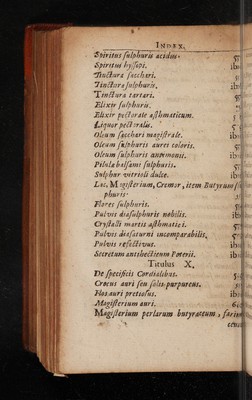 INDEX.
Spiritus sulphuris acidus.
Spiritus hyssopi.
Tinctura sacchari.
Tinctura sulphuris.
Tinctura tartari.
Elixir sulphuris.
Elixir pectorale asthmaticum.
Liquor pectoralis.
Oleum sacchari magistrale.
Oleum sulphuris aurei coloris.
Oleum sulphuris antimonii.
Pilulæ balsami sulphuris.
Sulphur vitrioli dulce.
Lac, Magisterium, Cremor, item Butyrum
phuris.
Flores sulphuris.
Pulvis diasulphuris nobilis.
Crystalli martis asthmatici.
Pulvis diasaturni incomparabilis.
Pulvis refectivus.
Secretum antihecticum Poterii.
Titulus X.
De specificis Cordialibus.
Crocus auri seu solis purpureus.
Flos auri pretiosus.
Magisterium auri.
Magisterium perlarum butyraceum,